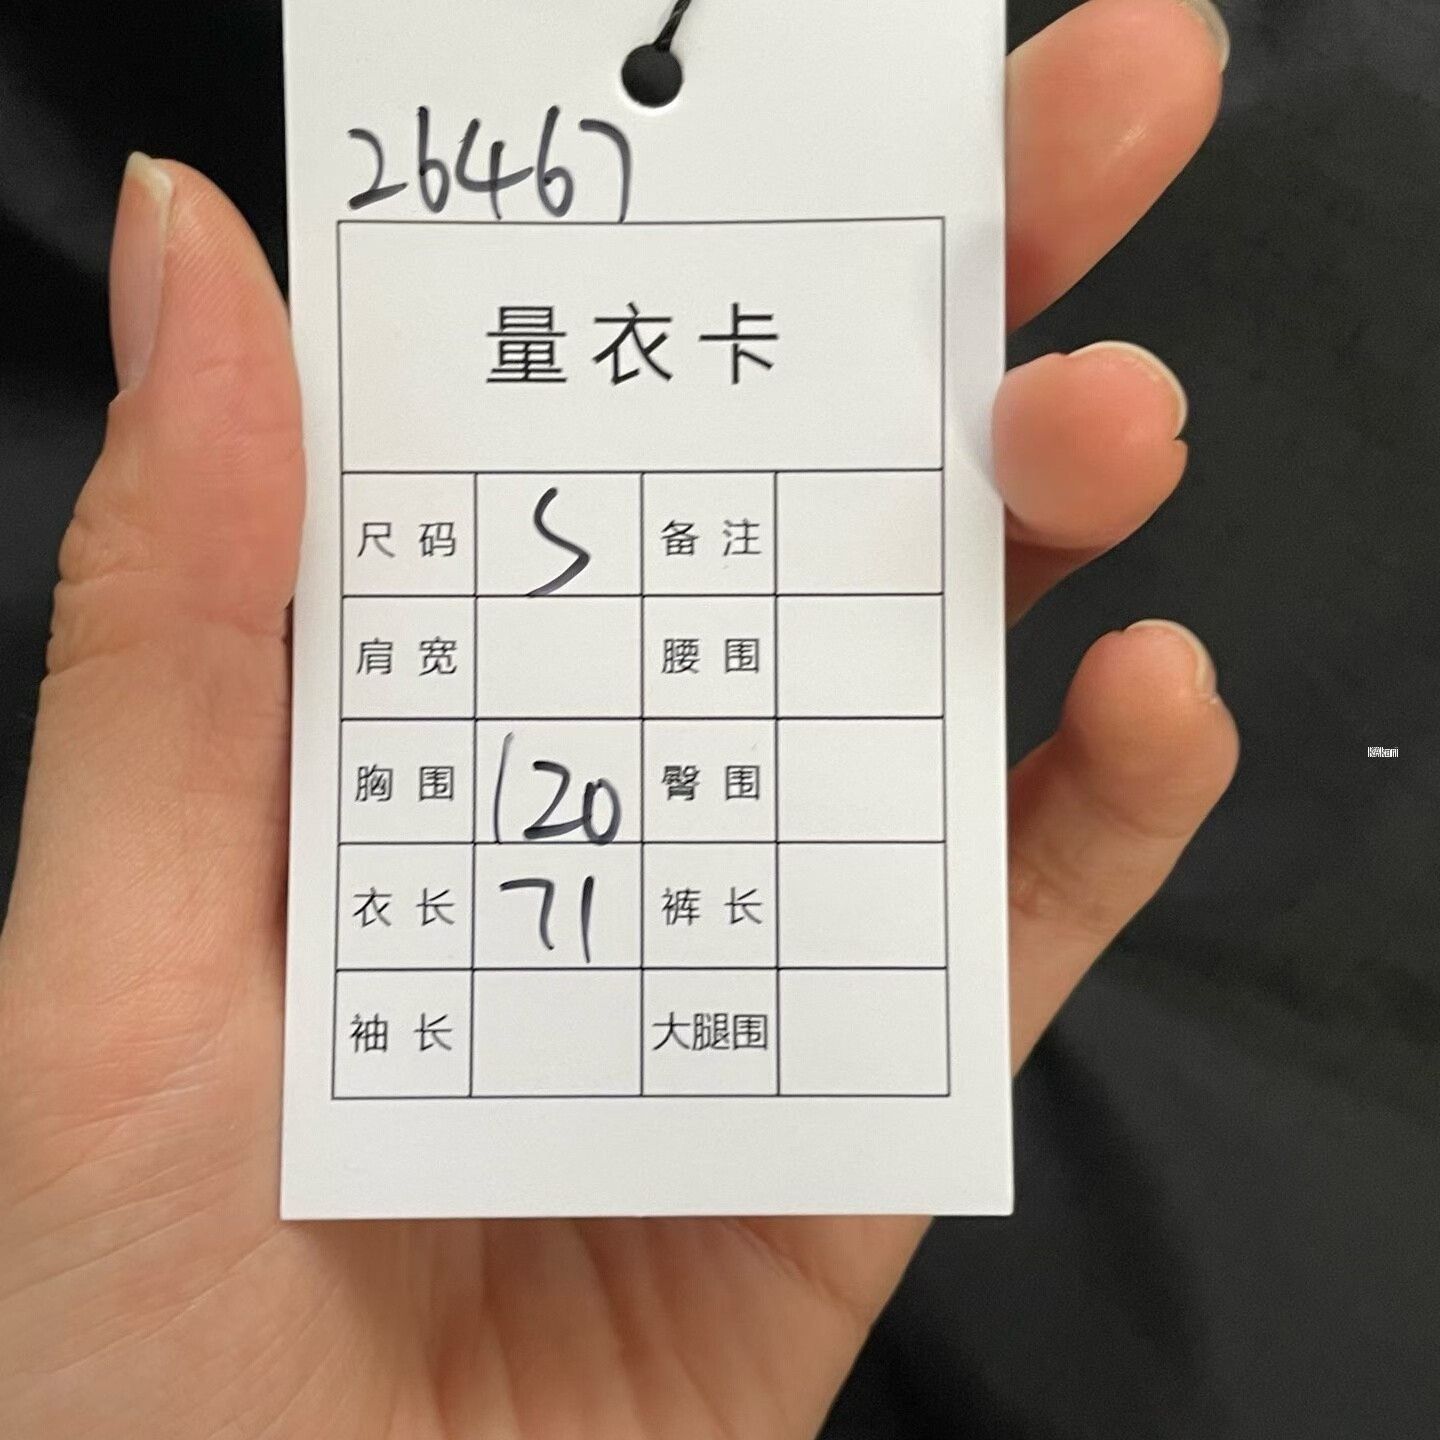 26467
量衣卡
尺码 S 备注
肩宽 腰围
胸围 120 臀围
衣长 71 裤长
袖长 大腿围
KAkari